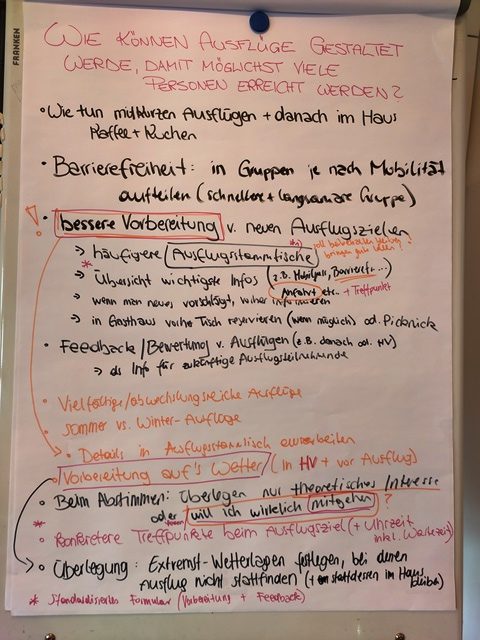 FRANKEN
WIE KÖNNEN AUSFLÜGE GESTALTET
WERDE, DAMIT MÖGLICHST VIELE
PERSONEN ERREICHT WERDEN?
• Wie tun mit kurzen Ausflügen + danach im Haus
Kaffee + Kuchen
• Barrierefreiheit: in Gruppen je nach Mobilität
aufteilen (schnellere + langsamere Gruppe)
! • bessere Vorbereitung v. neuen Ausflugszielen
→ häufigere Ausflugsstammtische
soll beibehalten werden?
→ Übersicht wichtigste Infos (z.B. Mobilpass, Barrierefr...)
* Anfahrt etc.. + Treffpunkt
→ wenn man neues vorschlägt, vorher informieren
→ in Gasthaus vorher Tisch reservieren (wenn möglich) od. Picknick
• Feedback/Bewertung v. Ausflügen (z.B. danach od. HV)
→ als Info für zukünftige Ausflugsteilnehmende
• Vielfältige/abwechslungsreiche Ausflüge
• Sommer vs. Winter-Ausflüge
• Details in Ausflugsstammtisch ausarbeiten
• Vorbereitung auf's Wetter (in HV + vor Ausflug)
• Beim Abstimmen: Überlegen nur theoretisches Interesse
oder will ich wirklich mitgehen?
* • Konkretere Treffpunkte beim Ausflugsziel (+ Uhrzeit
inkl. Wartezeit)
• Überlegung: Extremst-Wetterlagen festlegen, bei denen
Ausflug nicht stattfinden (+ stattdessen im Haus
bleibt)
* Standardisiertes Formular (Vorbereitung + Feedback)